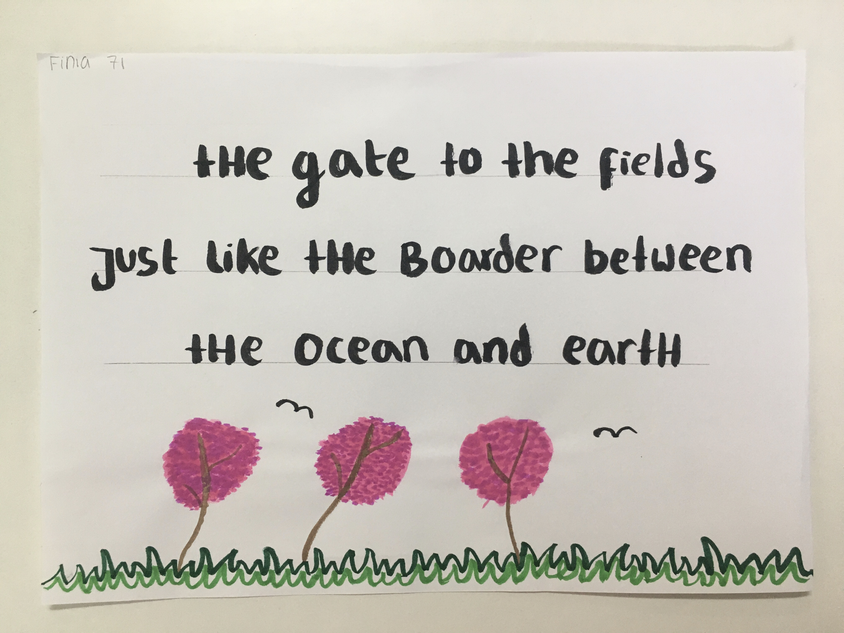 Finia 71
tHe gate to the fields
Just like tHe Boarder between
tHe ocean and eartH